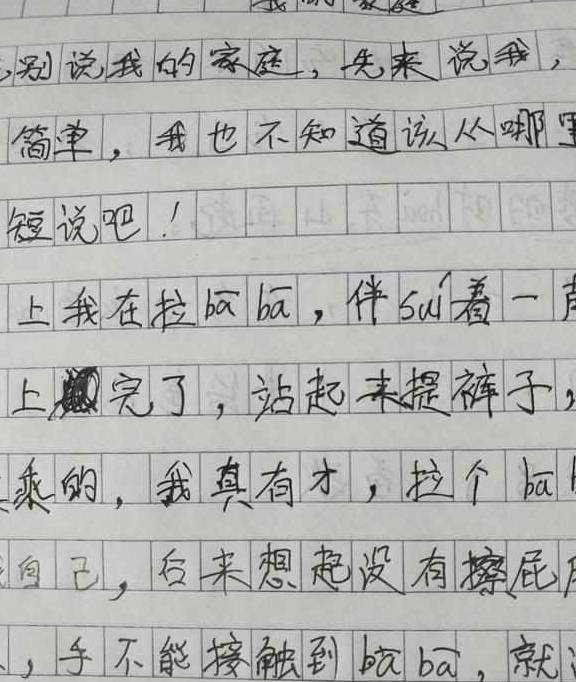 我的家庭
,别说我的家庭,先来说我,
简单,我也不知道该从哪里
短说吧!
上我在拉bā bā,伴suí着一声
上完了,站起来提裤子,
乘的,我真有才,拉个bā
自己,后来想起没有擦屁
,手不能接触到bā bā,就